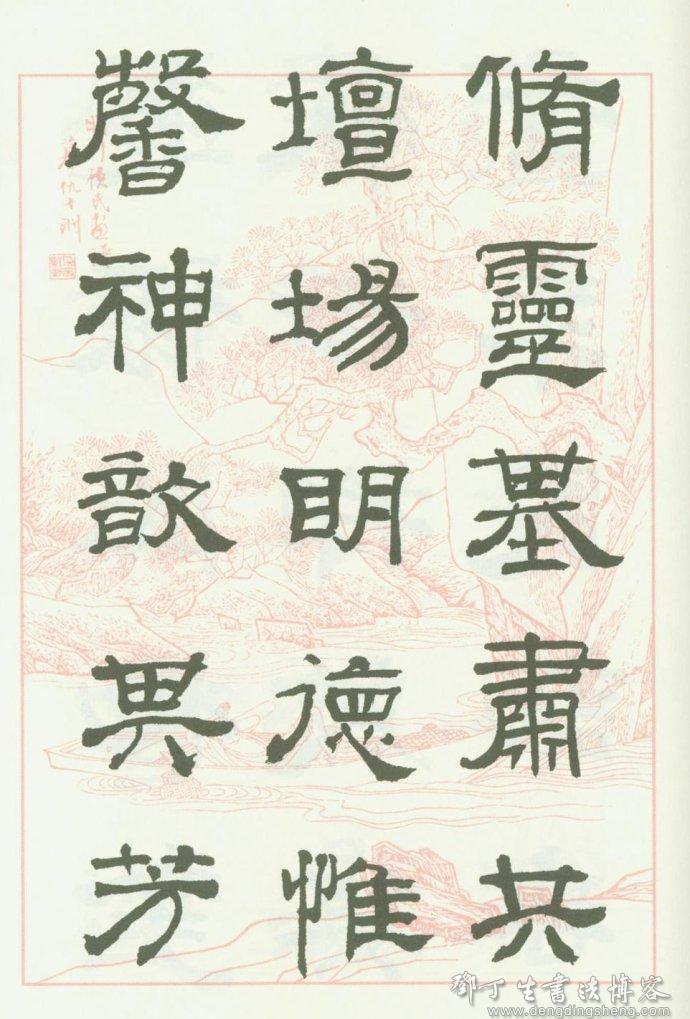 脩靈基肅共
壇場明德惟
馨神歆其芳
鄧丁生書法博客
www.dengdingsheng.com